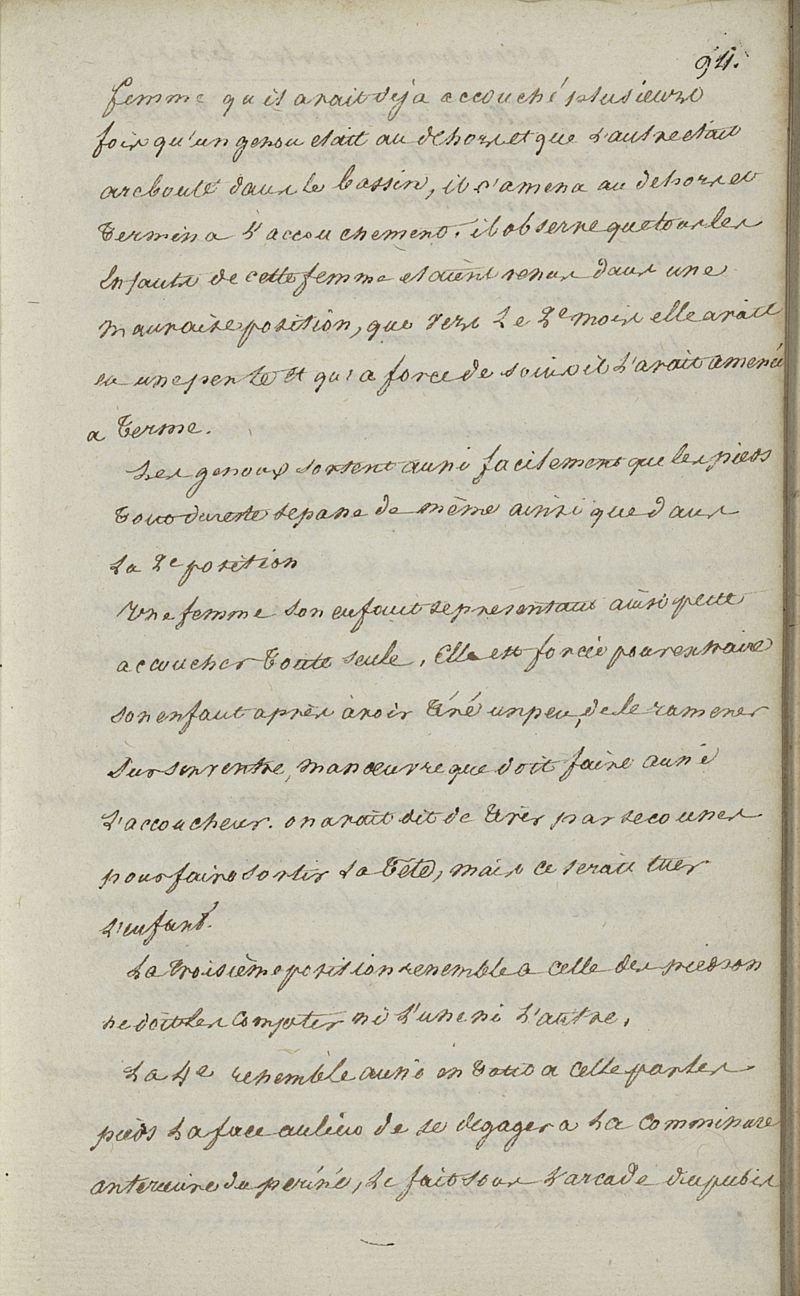 94.
femme qu'il avait deja accouché plusieurs
fois qu'un genou etait au dehors et que l'autre etait
arcbouté dans le bassin, il l'amena au dehors et
termina l'accouchement. il observe que tous les
enfants de cette femme etaient venus dans une
mauvaise position, que vers le 2e mois elle avait
eu une perte et qu'a force de soins il l'avait amenée
a terme.
Les genoux sortent aussi facilement que les pieds
tout du reste se passe de même ainsi que dans
la 2e position
Une femme son enfant se présentant ainsi peut
accoucher toute seule, elle est forcée pour extraire
son enfant après avoir tiré un peu, de le ramener
sur son ventre, manœuvre que doit faire aussi
l'accoucheur. on avait dit de tirer par secousses
pour faire sortir la tête, mais ce serait tuer
l'enfant.
La troisième position ressemble a celle des pieds on
ne doit les compter ni l'une ni l'autre,
La 4e ressemble aussi en tout a celle par les
pieds la face au lieu de se degager a la commissure
anterieure du périné, le fait sous l'arcade du pubis